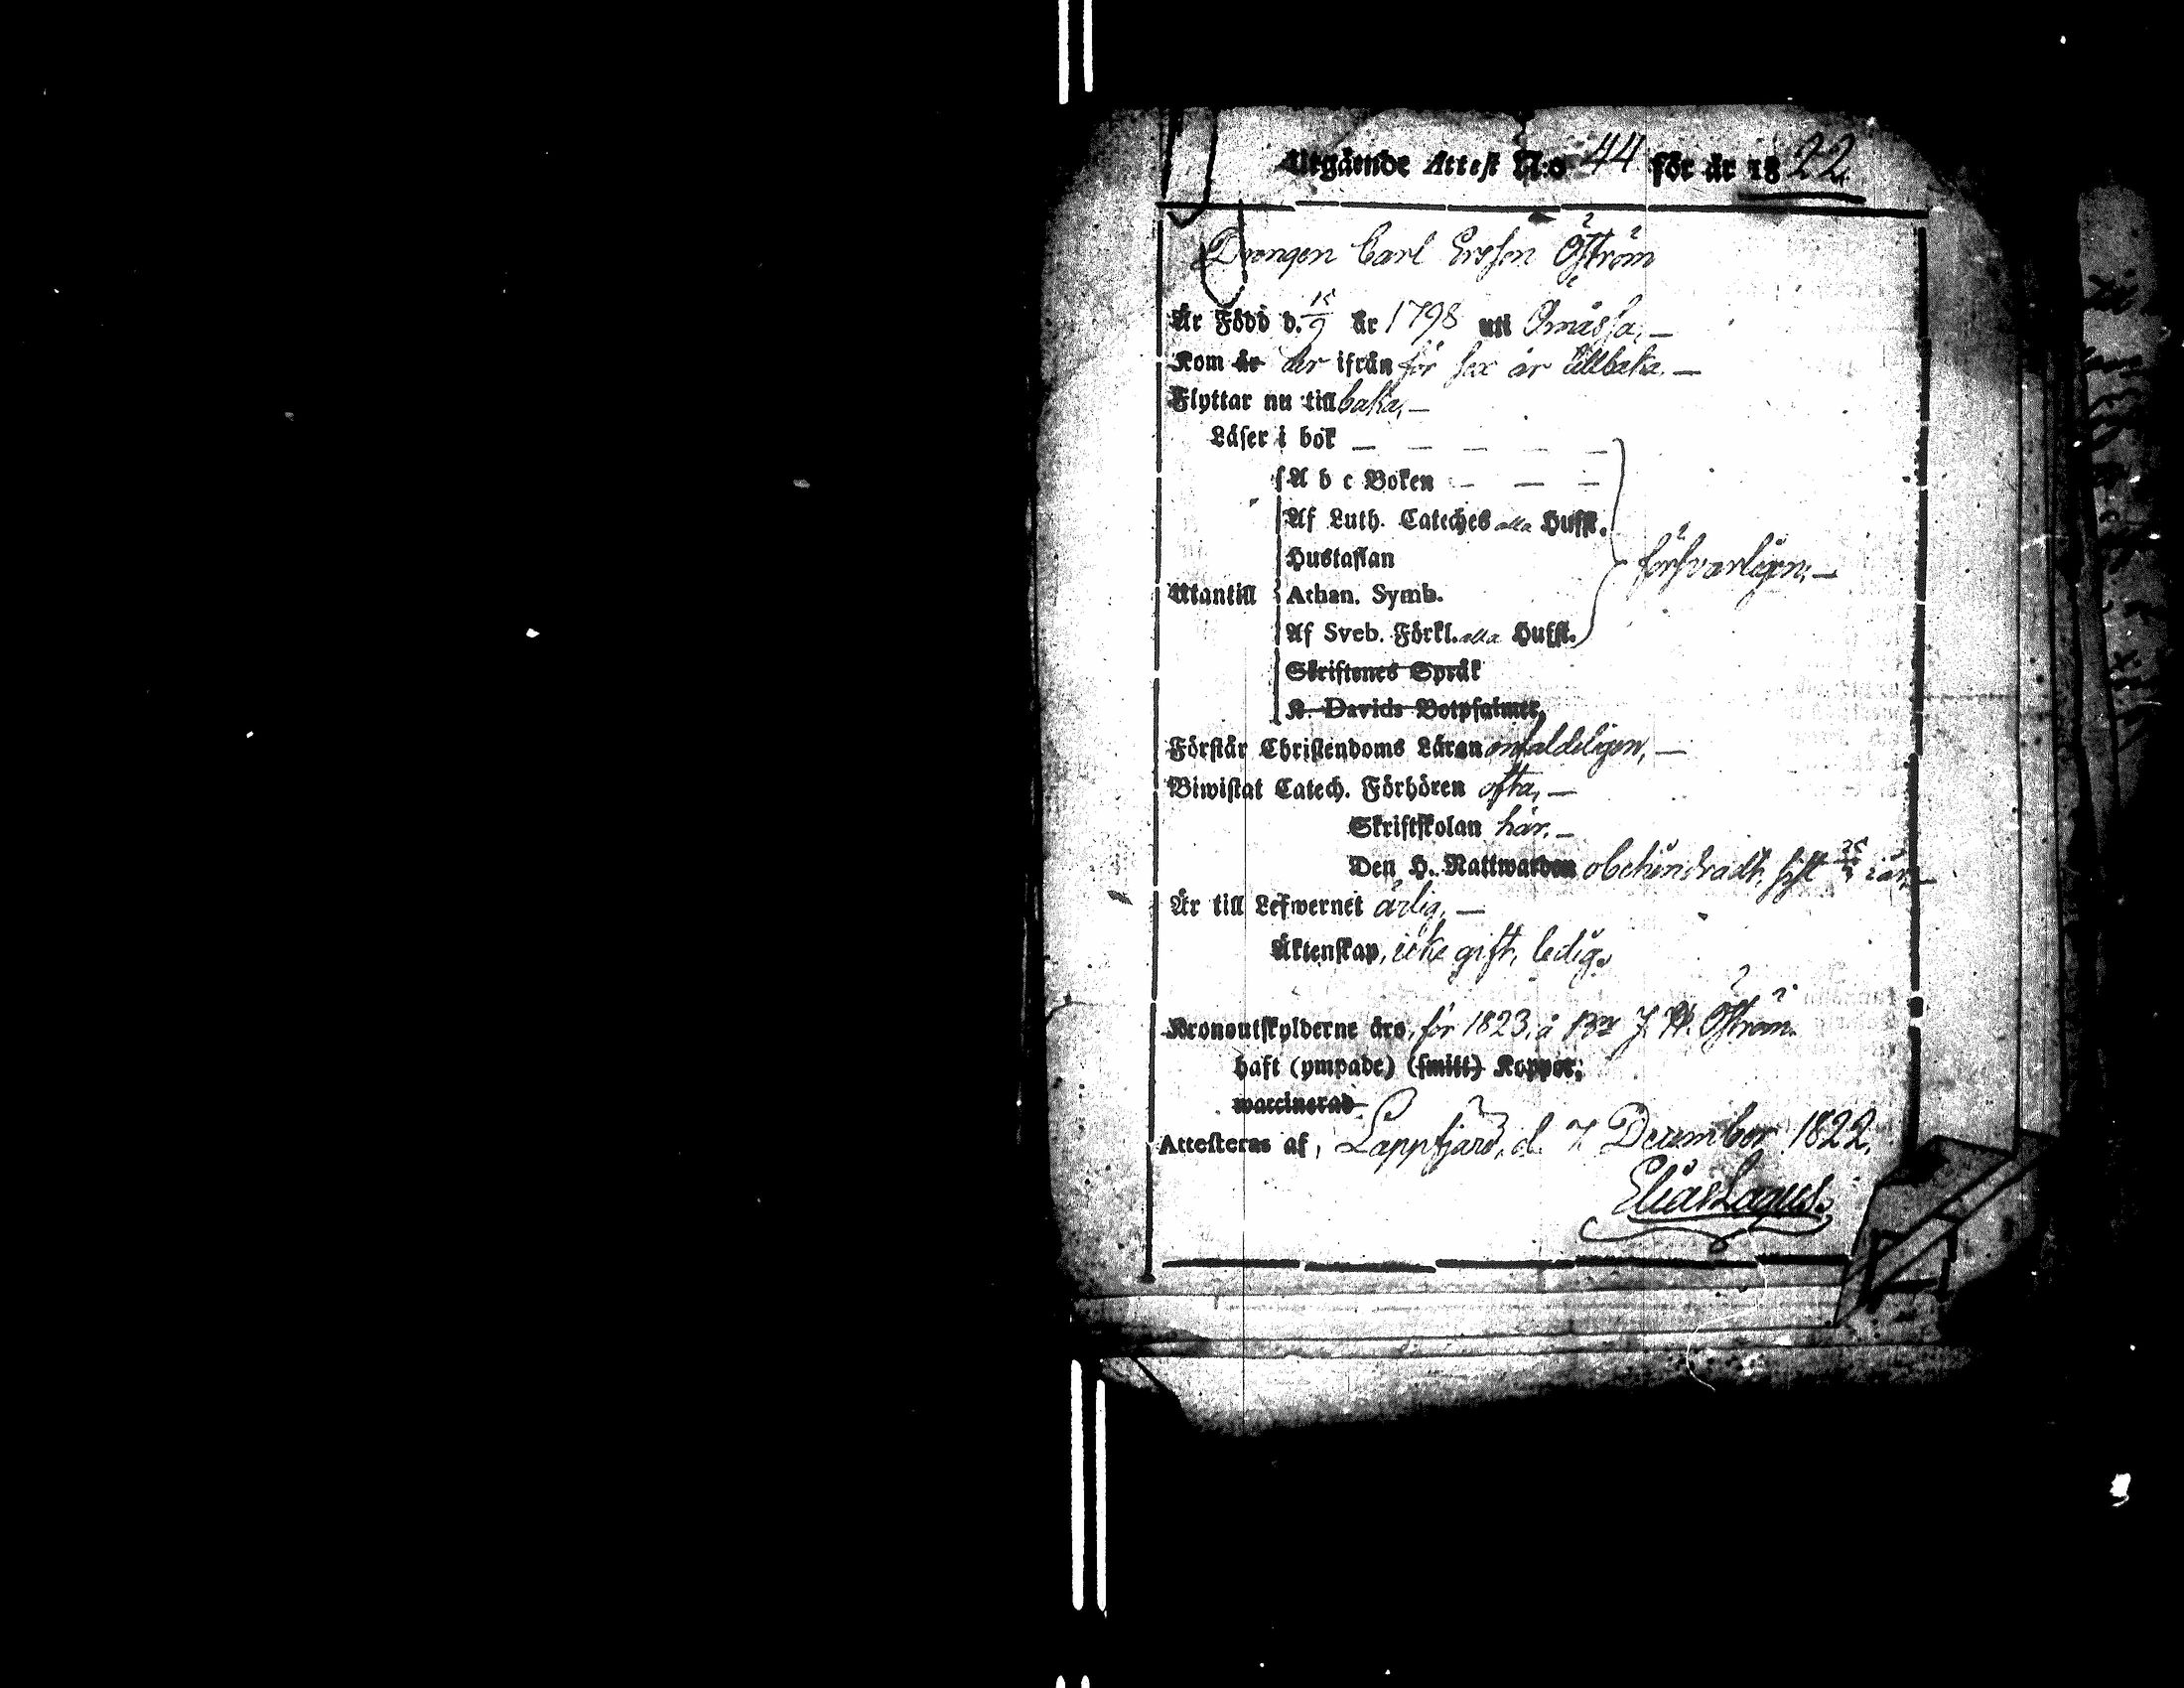 Utgående Attest N:o 44 för år 1822
Drengen Carl Ersson Öström
Är Född d. 15/9 år 1798 uti Ömåssa, —
Kom år der ifrån för sex år tillbaka. —
Flyttar nu tillbaka, —
Läser i bok — — — — —
A b c Boken — — —
Af Luth. Cateches alla Hufst.
Hustaflan
försvarligen, —
Utantill Athan. Symb.
Af Sveb. Förkl. alla Hufst.
Skriftenes Språk
K. Davids Botpsalmer,
Förstår Christendoms Läran enfaldeligen, —
Biwistat Catech. Förhören ofta, —
Skriftskolan här. —
Den H. Nattwarden obehindradt, sist i år, —
Är till Lefwernet ärlig, —
Äktenskap, icke gift, ledig.
Kronoutskylderne äro, för 1823, å J. Öström.
haft (ympade) (smitt) Koppor,
waccinerad
Attesteras af, Lappfjärd, d. 7 December 1822.
Elias Lagus.